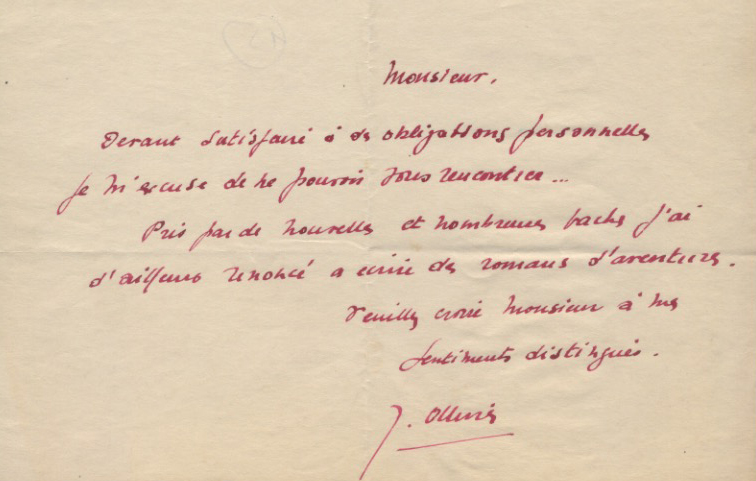 Monsieur,
Devant satisfaire à des obligations personnelles
je m'excuse de ne pouvoir vous rencontrer...
Pris par de nouvelles et nombreuses
j'ai
d'ailleurs renoncé à écrire des romans d'aventures.
Veuillez croire Monsieur à mes
sentiments distingués.
J.